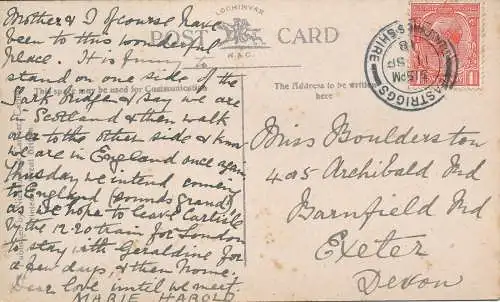 Mother & I of course have
been to this wonderful
place. It is funny to
stand on one side of the
Sark Bridge & say we are
in Scotland & then walk
over to the other side & know
we are in England once again
Thursday we intend coming
to England (sounds grand)
as we hope to leave Carlisle
by the 12.20 train for London
to stay with Geraldine for
a few days, & then home.
Dear love until we meet.
MARIE HAROLD
LOCHINVAR
POST CARD
R.A.C.
This space may be used for Communication
The Address to be written
here
EASTRIGGS
DUMFRIESSHIRE
5.15PM
SP
18
Miss Boulderston
405 Archibald Rd
Barnfield Rd
Exeter
Devon